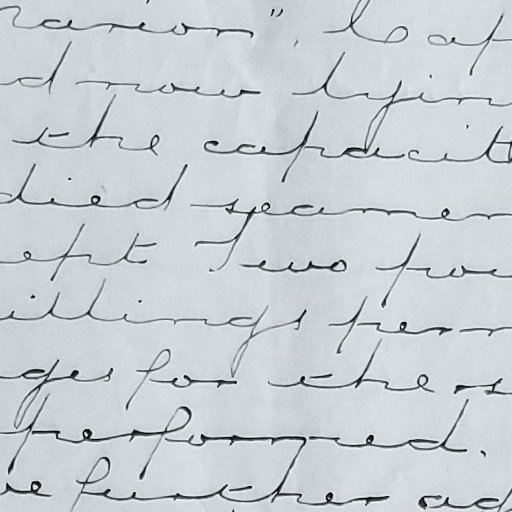 rarion", Cap
d now lyin
the capacit
died seamen
ept Two pou
illings per m
ges for the s
performed.
ve further ad